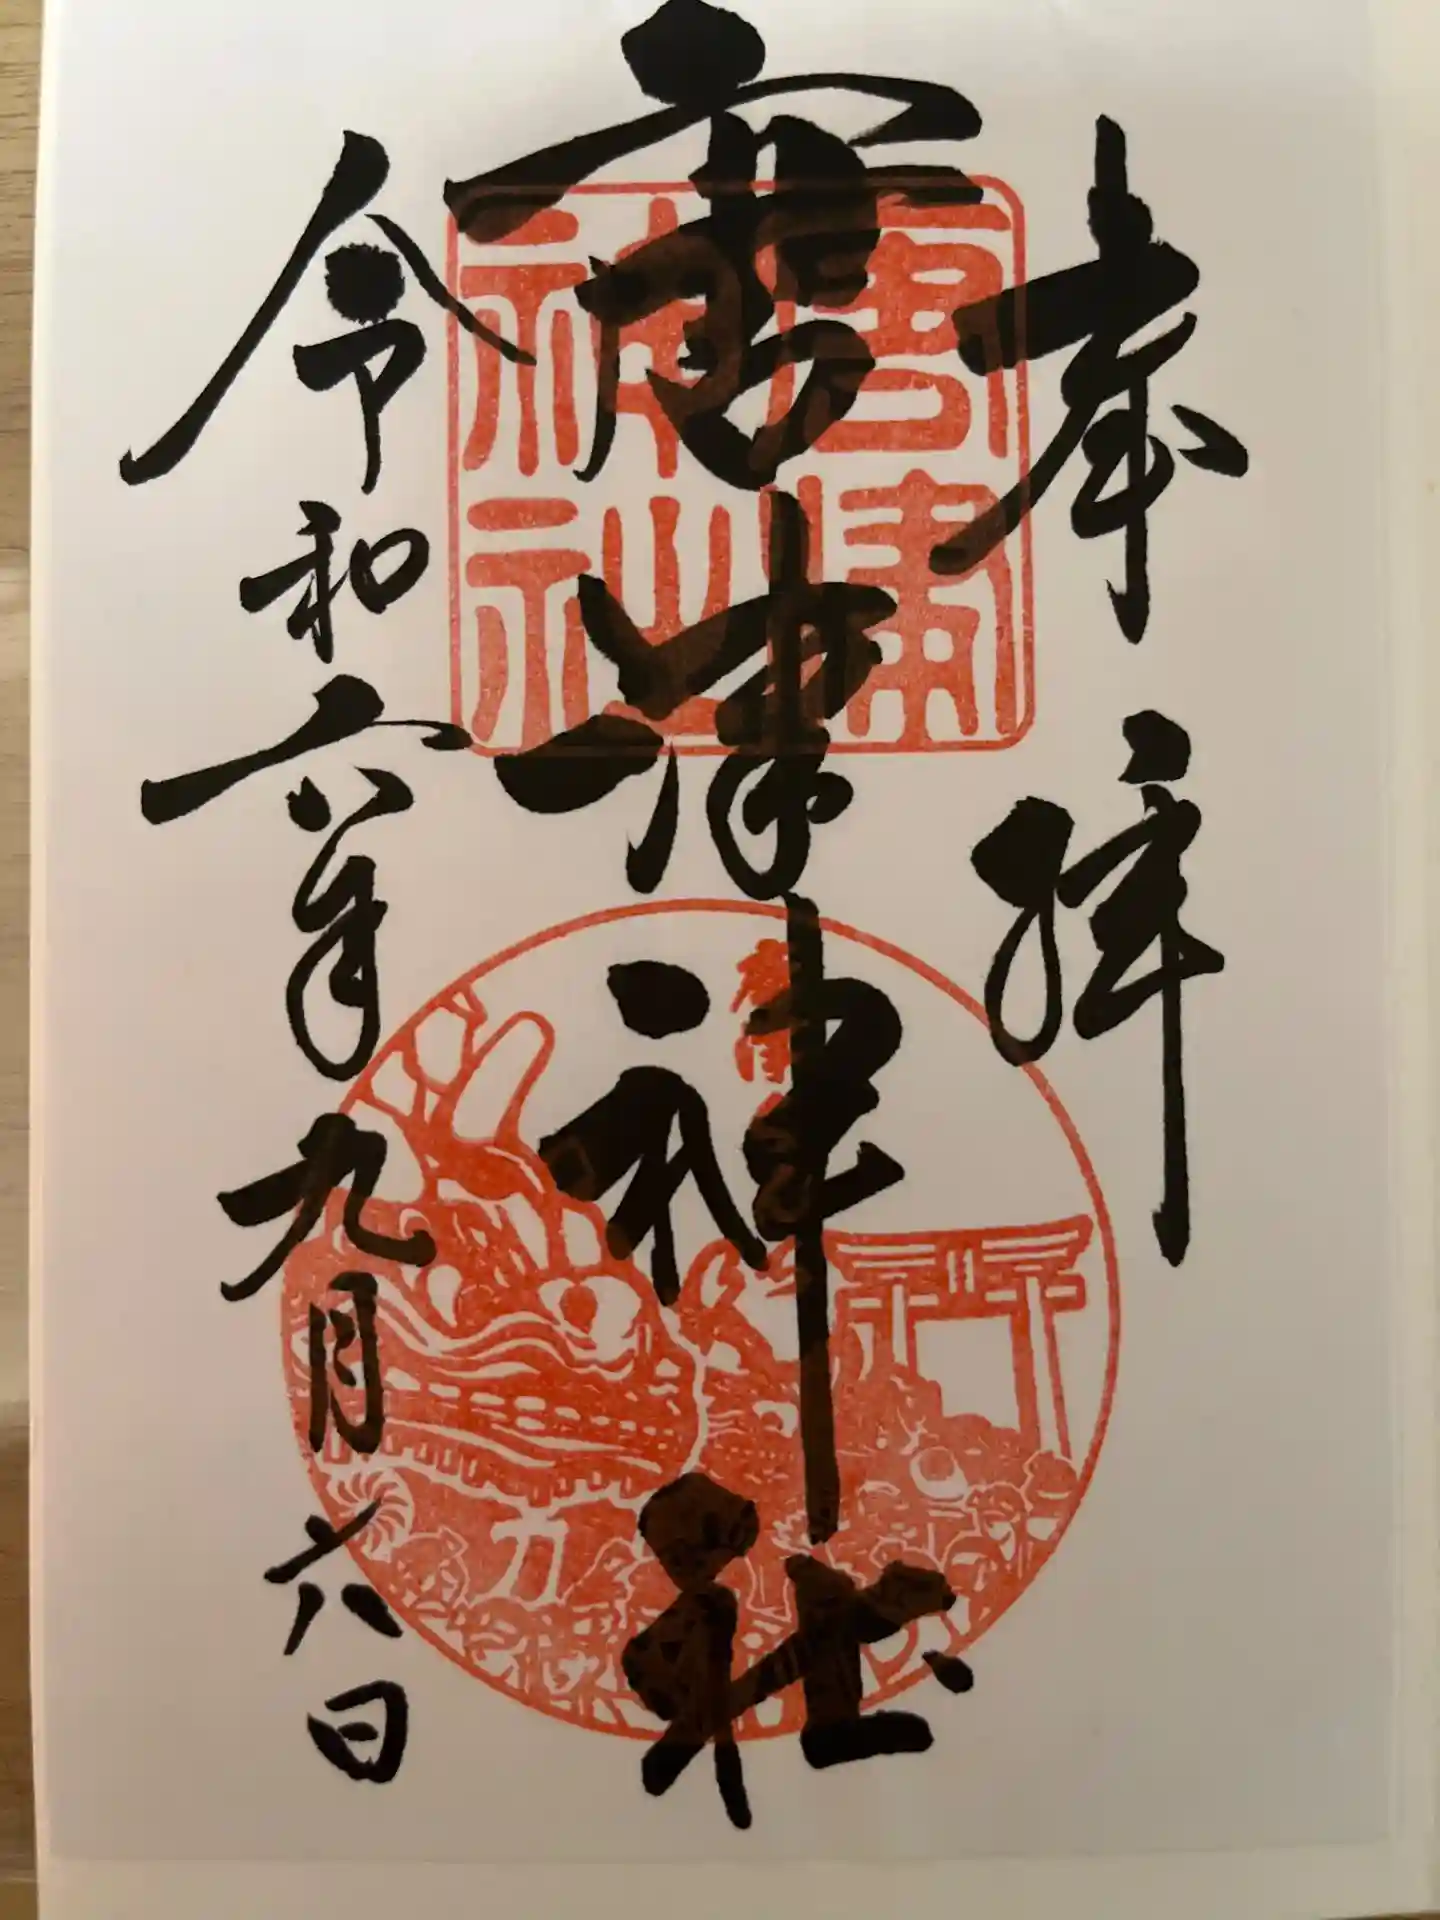 奉拝
唐津神社
令和六年九月六日
唐津
神社